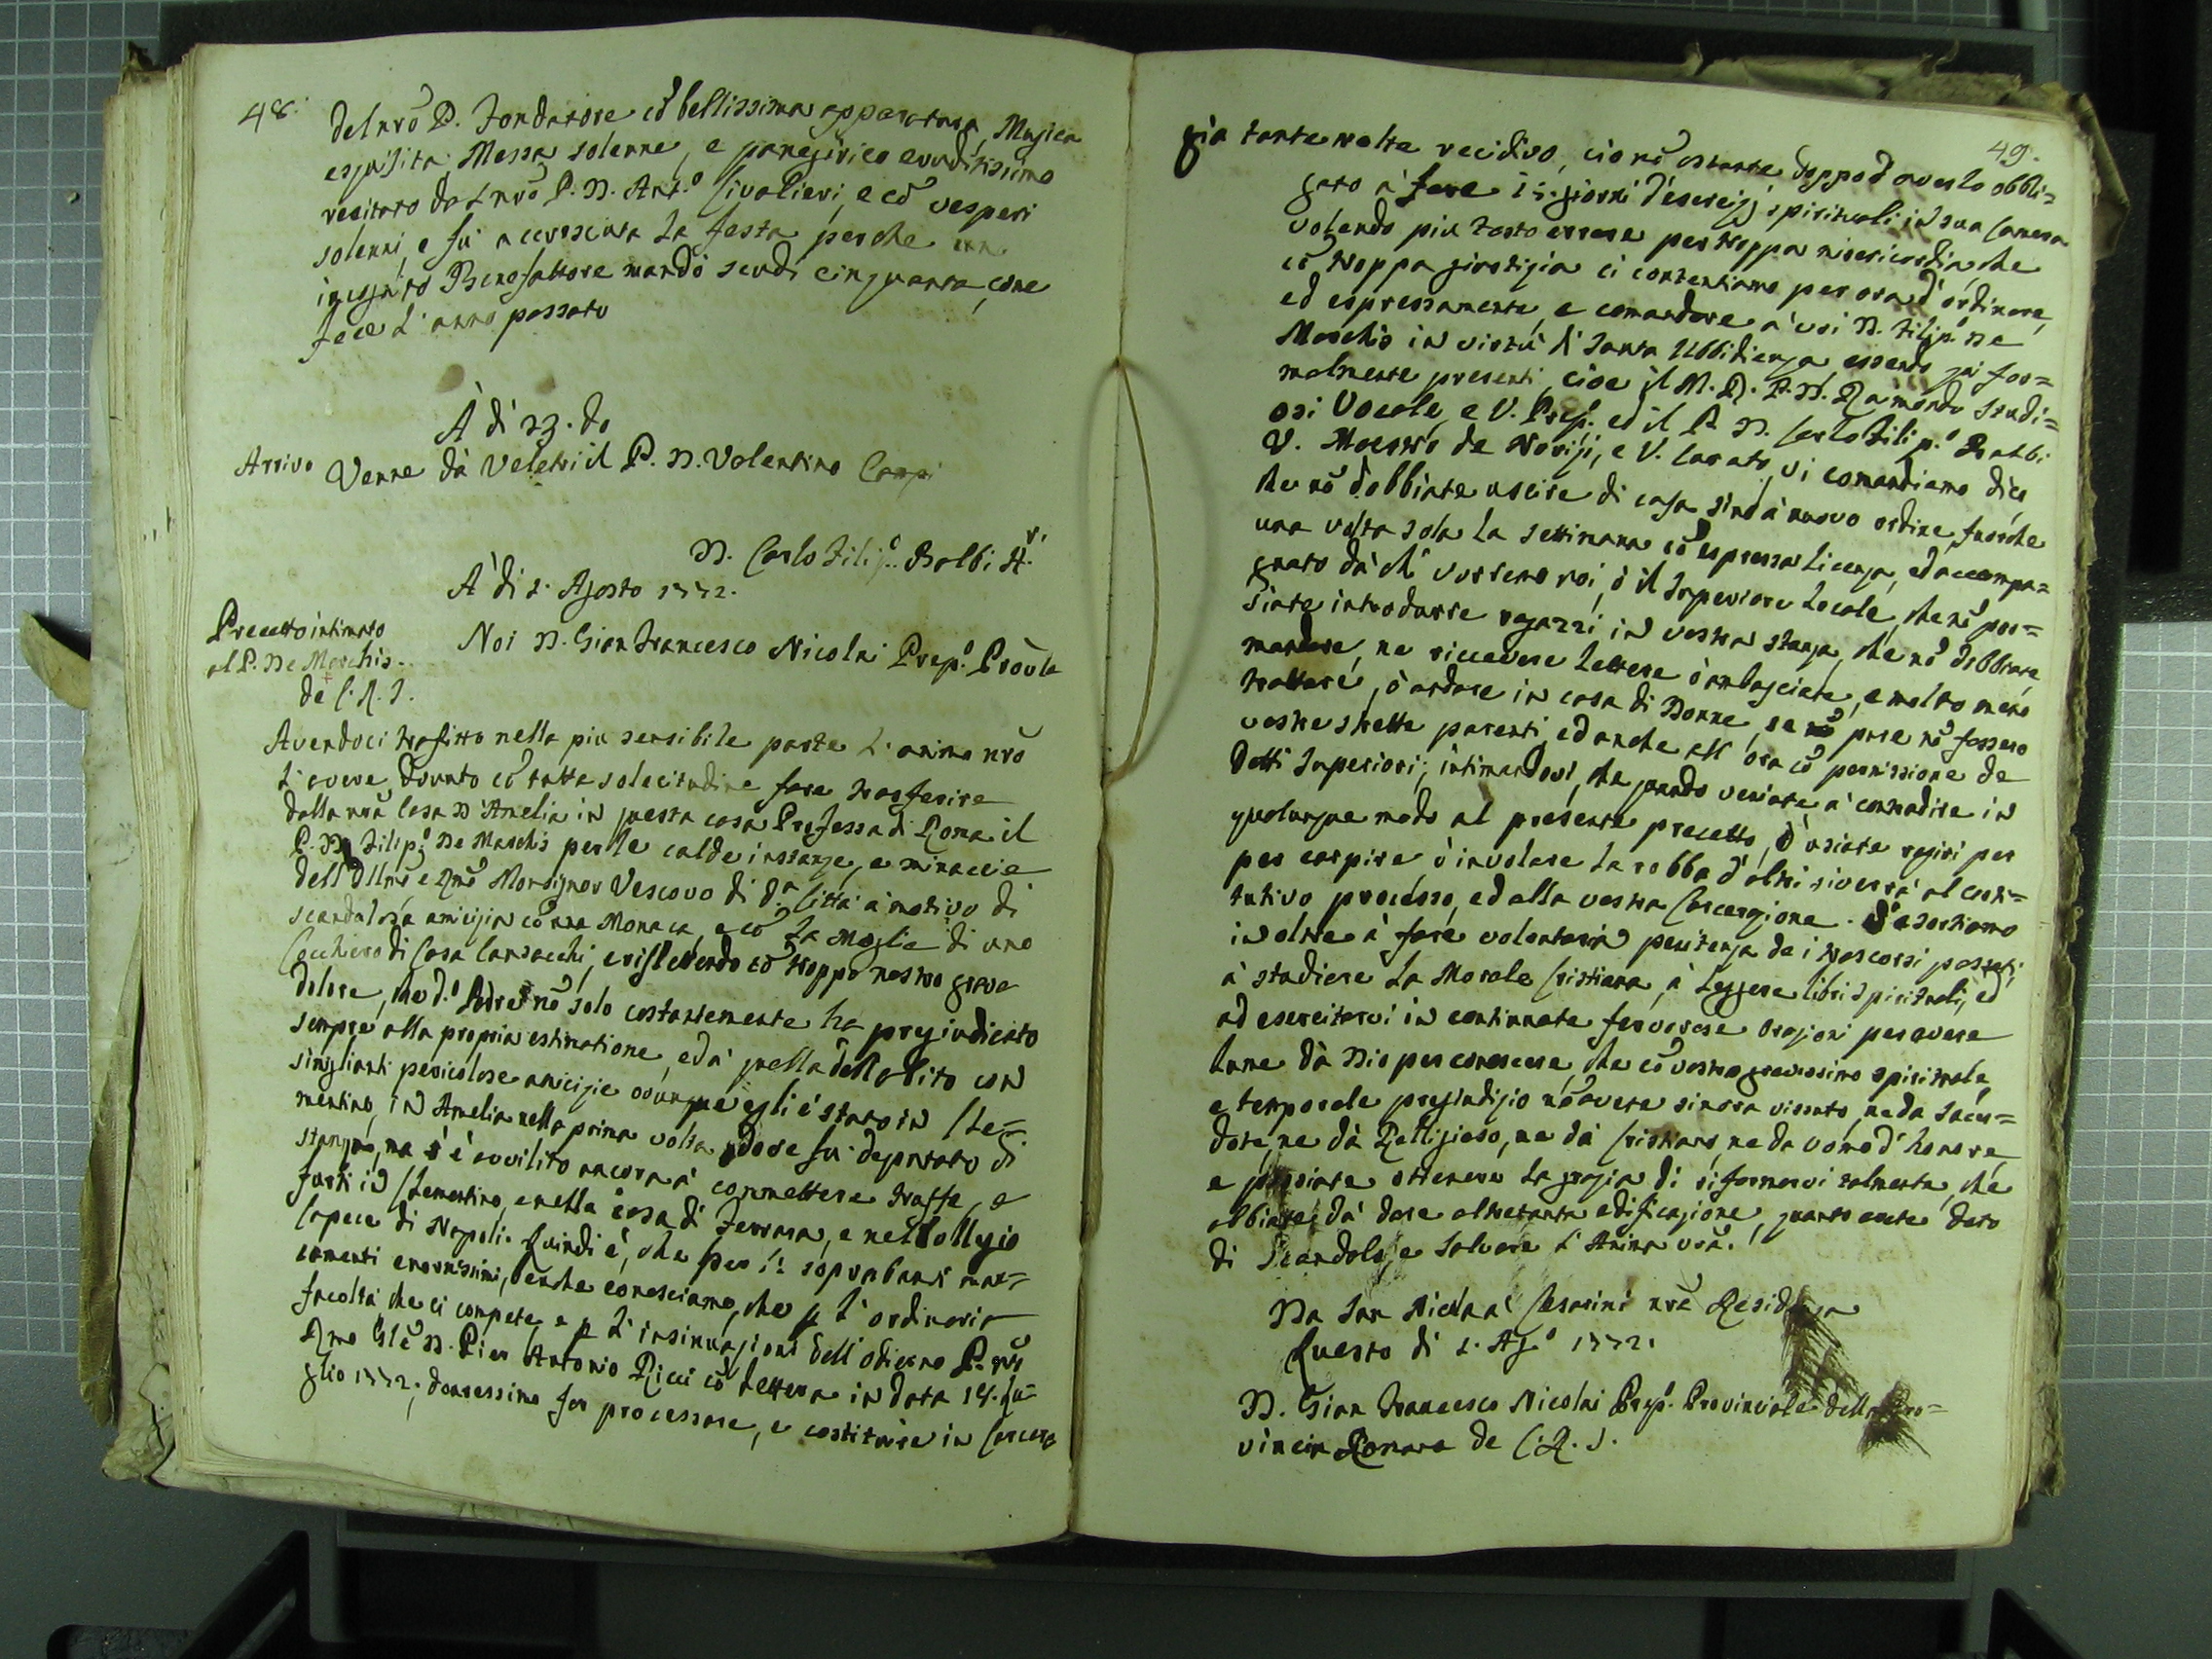 48.
del nrõ P. Fondatore cõ bellissima apparatura, Musica
esquisita Messa solenne, e panegirico eruditissimo
recitato dal nrõ P. D. Ant.º Civalieri, e cõ vesperi
solenni, e fù accresciuta la festa perche un
incognito Benefattore mandò scudi cinquanta, come
fece l'anno passato
À dì 23. do
Arrivo Venne dà Veletri il P. D. Valentino Carpi
D. Carlo Filip.º Balbi
À dì 1. Agosto 1772.
Precetto intimato
al P. De Marchis.
Noi D. Gian Francesco Nicolai Prep.º Prõvle
de C. R. S.
Avendoci trafitto nella più sensibile parte l'animo nrõ
l'avere dovuto cõ tutta solecitudine fare trasferire
dalla nrã Casa d'Amelia in questa casa Professa di Roma il
P. D. Filip.º De Marchis per le calde instanze, e minaccie
dell'Illmõ e Rmõ Monsignor Vescovo di d.ª Città à motivo di
scandalosa amicizia cõ una Monaca, e cõ la Moglie di uno
Cocchiero di Casa Cansacchi, e riflettendo cõ troppo nostro grave
dolore, che d.º Padre nõ solo costantemente ha pregiudicato
sempre alla propria estimatione, ed à quella dell'abito con
simglianti pericolose amicizie ovunque egli è stato in Cle=
mentino, in Amelia nella prima volta, dove fù deputato di
stanza, ma s'è avvilito ancora à commettere truffe, e
furti in Clementino, e nella casa di Ferrara, e nel Collegio
Capece di Napoli. Quindi è, che per li soprabondi man=
camenti enormissimi, benche conosciamo, che p l'ordinaria
facoltà che ci compete, e p l'insinuazioni dell'odierno P. nrõ
Rmo Gle D. Pier Antonio Ricci cõ lettera in data 14. Lu=
glio 1772; dovessimo far processare, e costituire in Carcere
49.
già tante volte recidivo, ciò nõ ostante doppo d'averlo obbli=
gato à fare 15. giorni d'esercizj spirituali in sua Camera
volendo più tosto errare per troppa misericordia, che
cõ troppa giustizia ci contentiamo per ora d'ordinare,
ed espressamente, e comandare à voi D. Filip.º De
Marchis in virtù di Santa Ubbidienza essendo qui for=
malmente presenti, cioe il M. R. P. D. Raimondo Studi=
osi Vocale, e V. Prep.º ed il P. D. Carlo Filip.º Balbi
V. Maestro de Novizj, e V. Curato, vi comandiamo dico
che nõ dobbiate uscire di casa sino à nuovo ordine, fuorche
una volta sola la settimana cõ espressa licenza, ed accompa=
gnato dà chi vorremo noi, ò il Superiore locale, che nõ pos=
siate introdurre ragazzi in vostra stanza, che nõ dobbiate
mandare, ne riccevere lettere ò ambasciate, e molto meno
trattare, ò andare in casa di Donne, se pure nõ fossero
vostre strette parenti, ed anche all'ora cõ permissione de
detti Superiori; intimandovi, che quando veniate à contradire in
qualunque modo al presente precetto, ò usiate regiri per
per carpire ò involare la robba d'altri si verrà al costi=
tutivo processo, ed alla vostra Carcerazione. V'esortiamo
in oltre à fare volontaria penitenza de i trascorsi passati,
à studiare la Morale Cristiana, à Leggere libri spirituali, ed
ad esercitarvi in continuate fervorose Orazioni per avere
lume dà Dio per conoscere, che cõ vostro gravissimo spirituale,
e temporale pregiudizio nõ avete sin'ora vissuto, ne da Sacer=
dote, ne dà Relligioso, ne dà Cristiano, ne da uomo d'honore,
e possiate ottenere la grazia di riformarvi talmente, che
abbiate dà dare altretanta edificazione, quanto avete dato
di Scandalo, e salvare l'Anima vrã.
Da San Nicola à Cesarini nrã Residenza
Questo dì 1. Ag.º 1772.
D. Gian Francesco Nicolai Prep.º Provinciale della Pro=
vincia Romana de C. R. S.